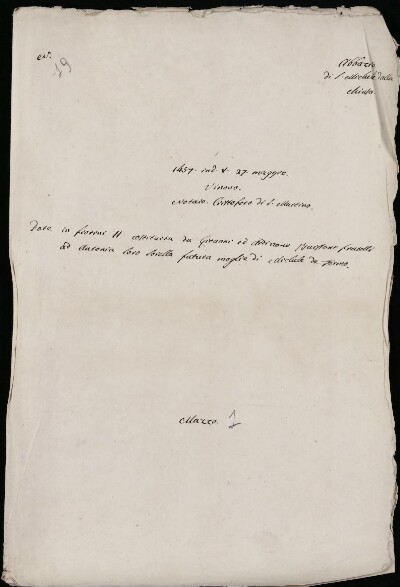 Abbazia
di S. Michele della
Chiusa.
19
1457. ind. V. 27. maggio.
Vinovo.
Notaio Cristoforo di S. Martino.
Dote in fiorini costituita da Giovanni ed fratelli
ad Antonia loro sorella futura moglie di Michele de
Mazzo. 1